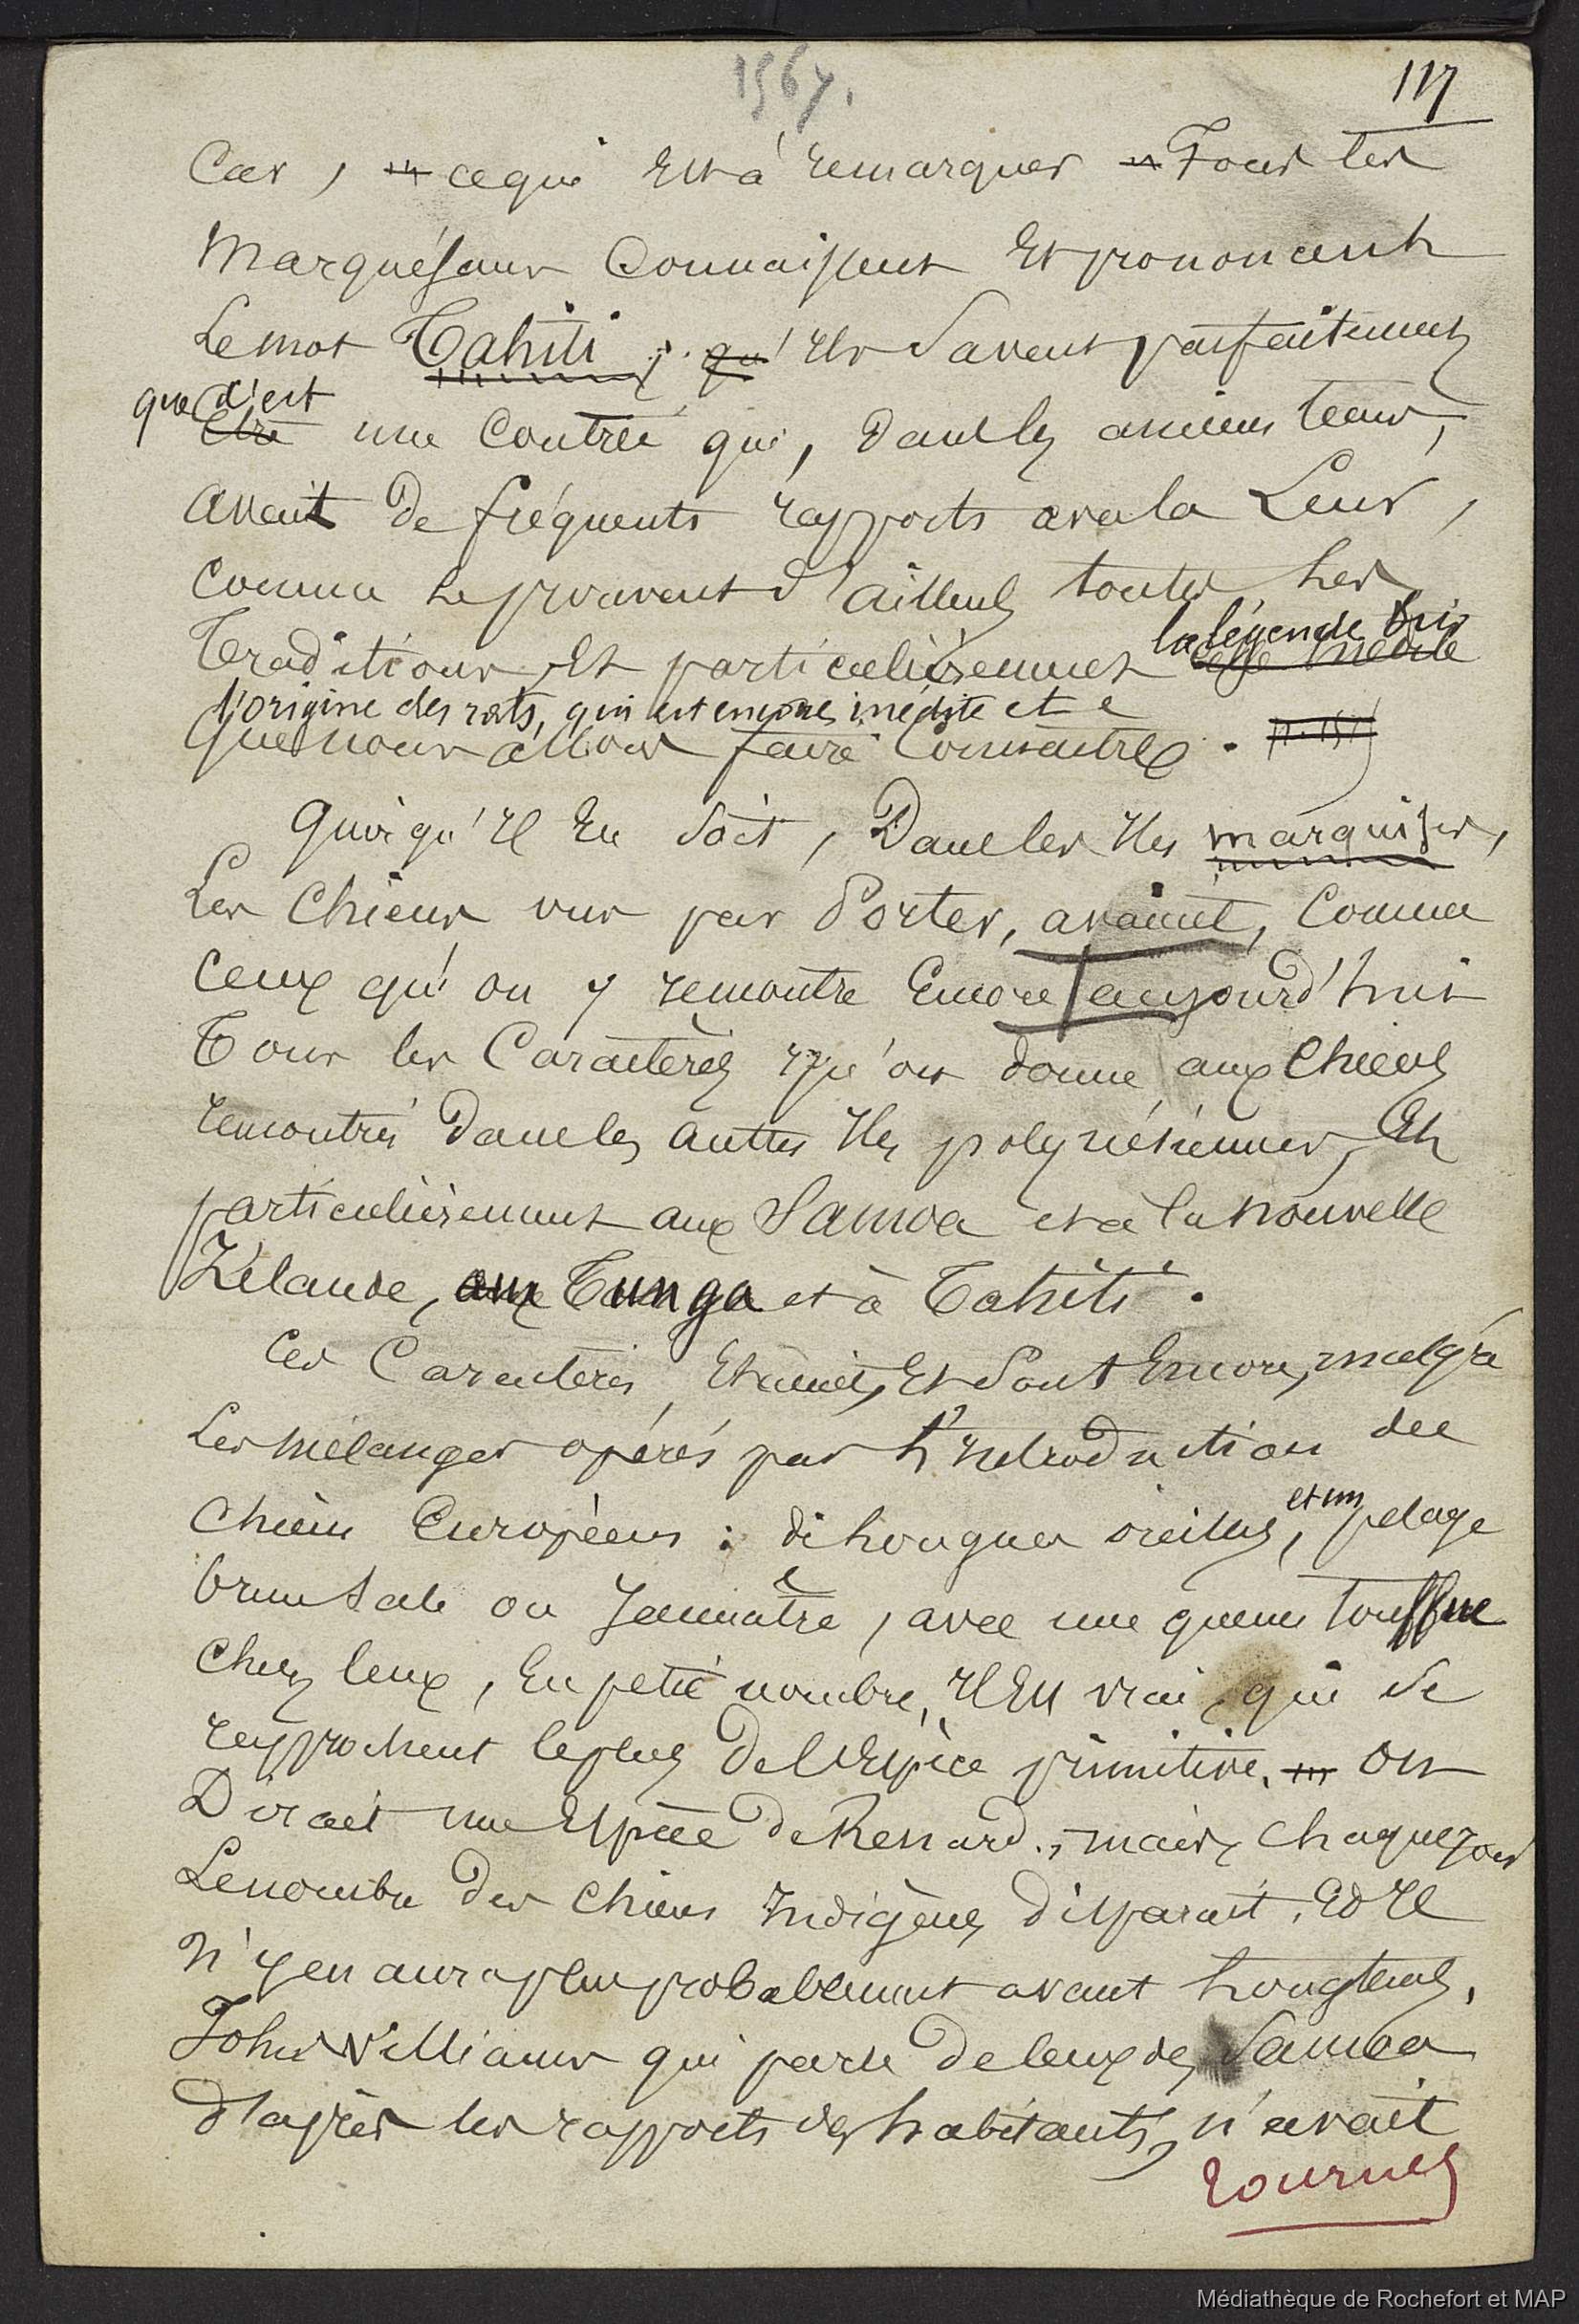 1567.
117
Car, ce qui est à remarquer Tous les
Marquésans connaissent et prononcent
le mot Tahiti ; qu' ils savent parfaitement
que c'est
être une contrée qui, dans les anciens temps,
avait de fréquents rapports avec la leur,
comme le prouvent d'ailleurs toutes les
la légende sur
traditions et particulièrement celle inédite
l'origine des rats, qui est encore inédite et
que nous allons faire connaître.
Quoiqu'il en soit, dans les Iles marquises,
Les chiens vus par Porter, avaient, comme
ceux qu'on y rencontre encore aujourd'hui
Tous les caractères qu'on donne aux chiens
rencontrés dans les autres Iles polynésiennes, et
particulièrement aux Samoa et à la nouvelle
Zélande, aux Tunga et à Tahiti.
Ces caractères étaient, et sont encore, malgré
les mélanges opérés par l'introduction des
chiens Européens : de longues oreilles, et un pelage
brun sale ou jaunâtre, avec une queue touffue
chez ceux, en petit nombre, il est vrai, qui se
rapprochent le plus de l'espèce primitive. On
Dirait une espèce de Renard ; mais, chaque jour
Le nombre des chiens indigènes disparait, et il
n'y en aura plus probablement avant longtems.
John Williams qui parle de ceux des Samoa
d'après les rapports des habitants, n'avait
tournez
Médiathèque de Rochefort et MAP